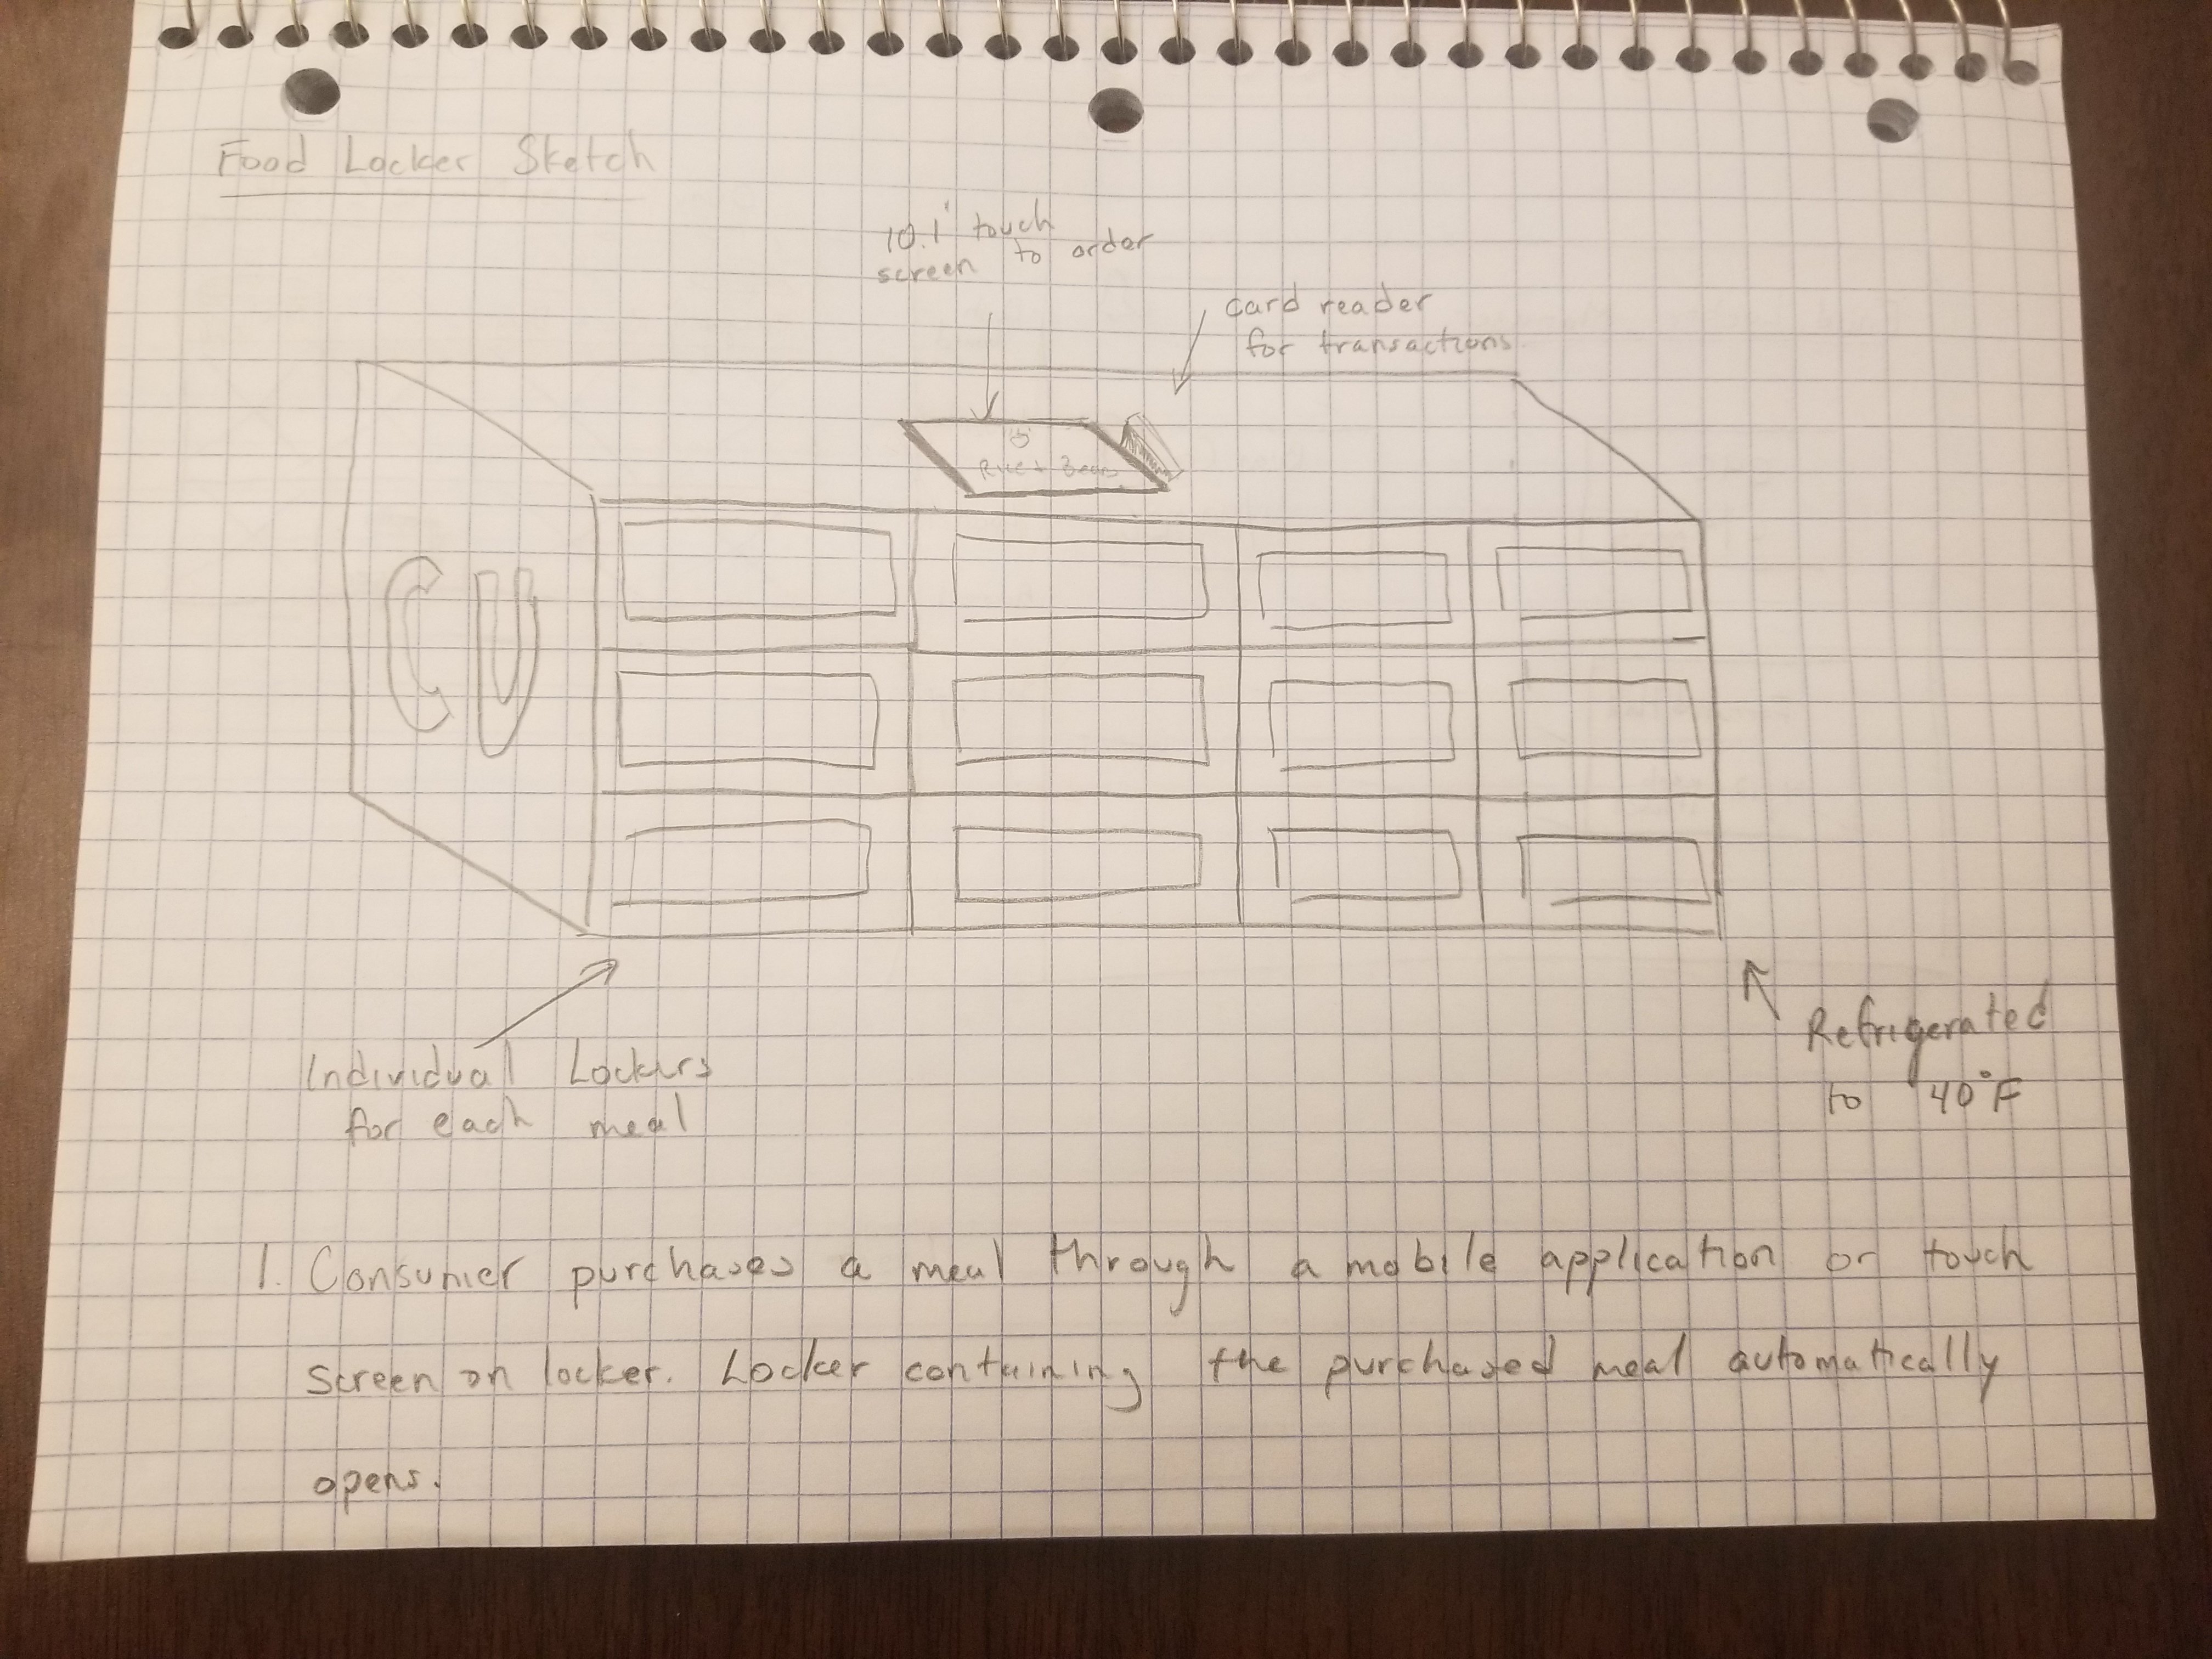 Food Locker Sketch
10.1" touch
screen to order
card reader
for transactions
Rice + Beans
CU
Individual Lockers
for each meal
Refrigerated
to 40°F
1. Consumer purchases a meal through a mobile application or touch
Screen on locker. Locker containing the purchased meal automatically
opens.